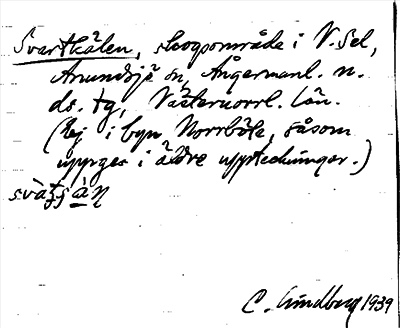 Svartkälen, skogsområde i V. Sel,
Anundsjö sn, Ångermanl. n.
ds. tg, Västernorrl. län.
(Ej i byn Norrböle, såsom
uppges i äldre uppteckningar.)
C. Lindberg 1939